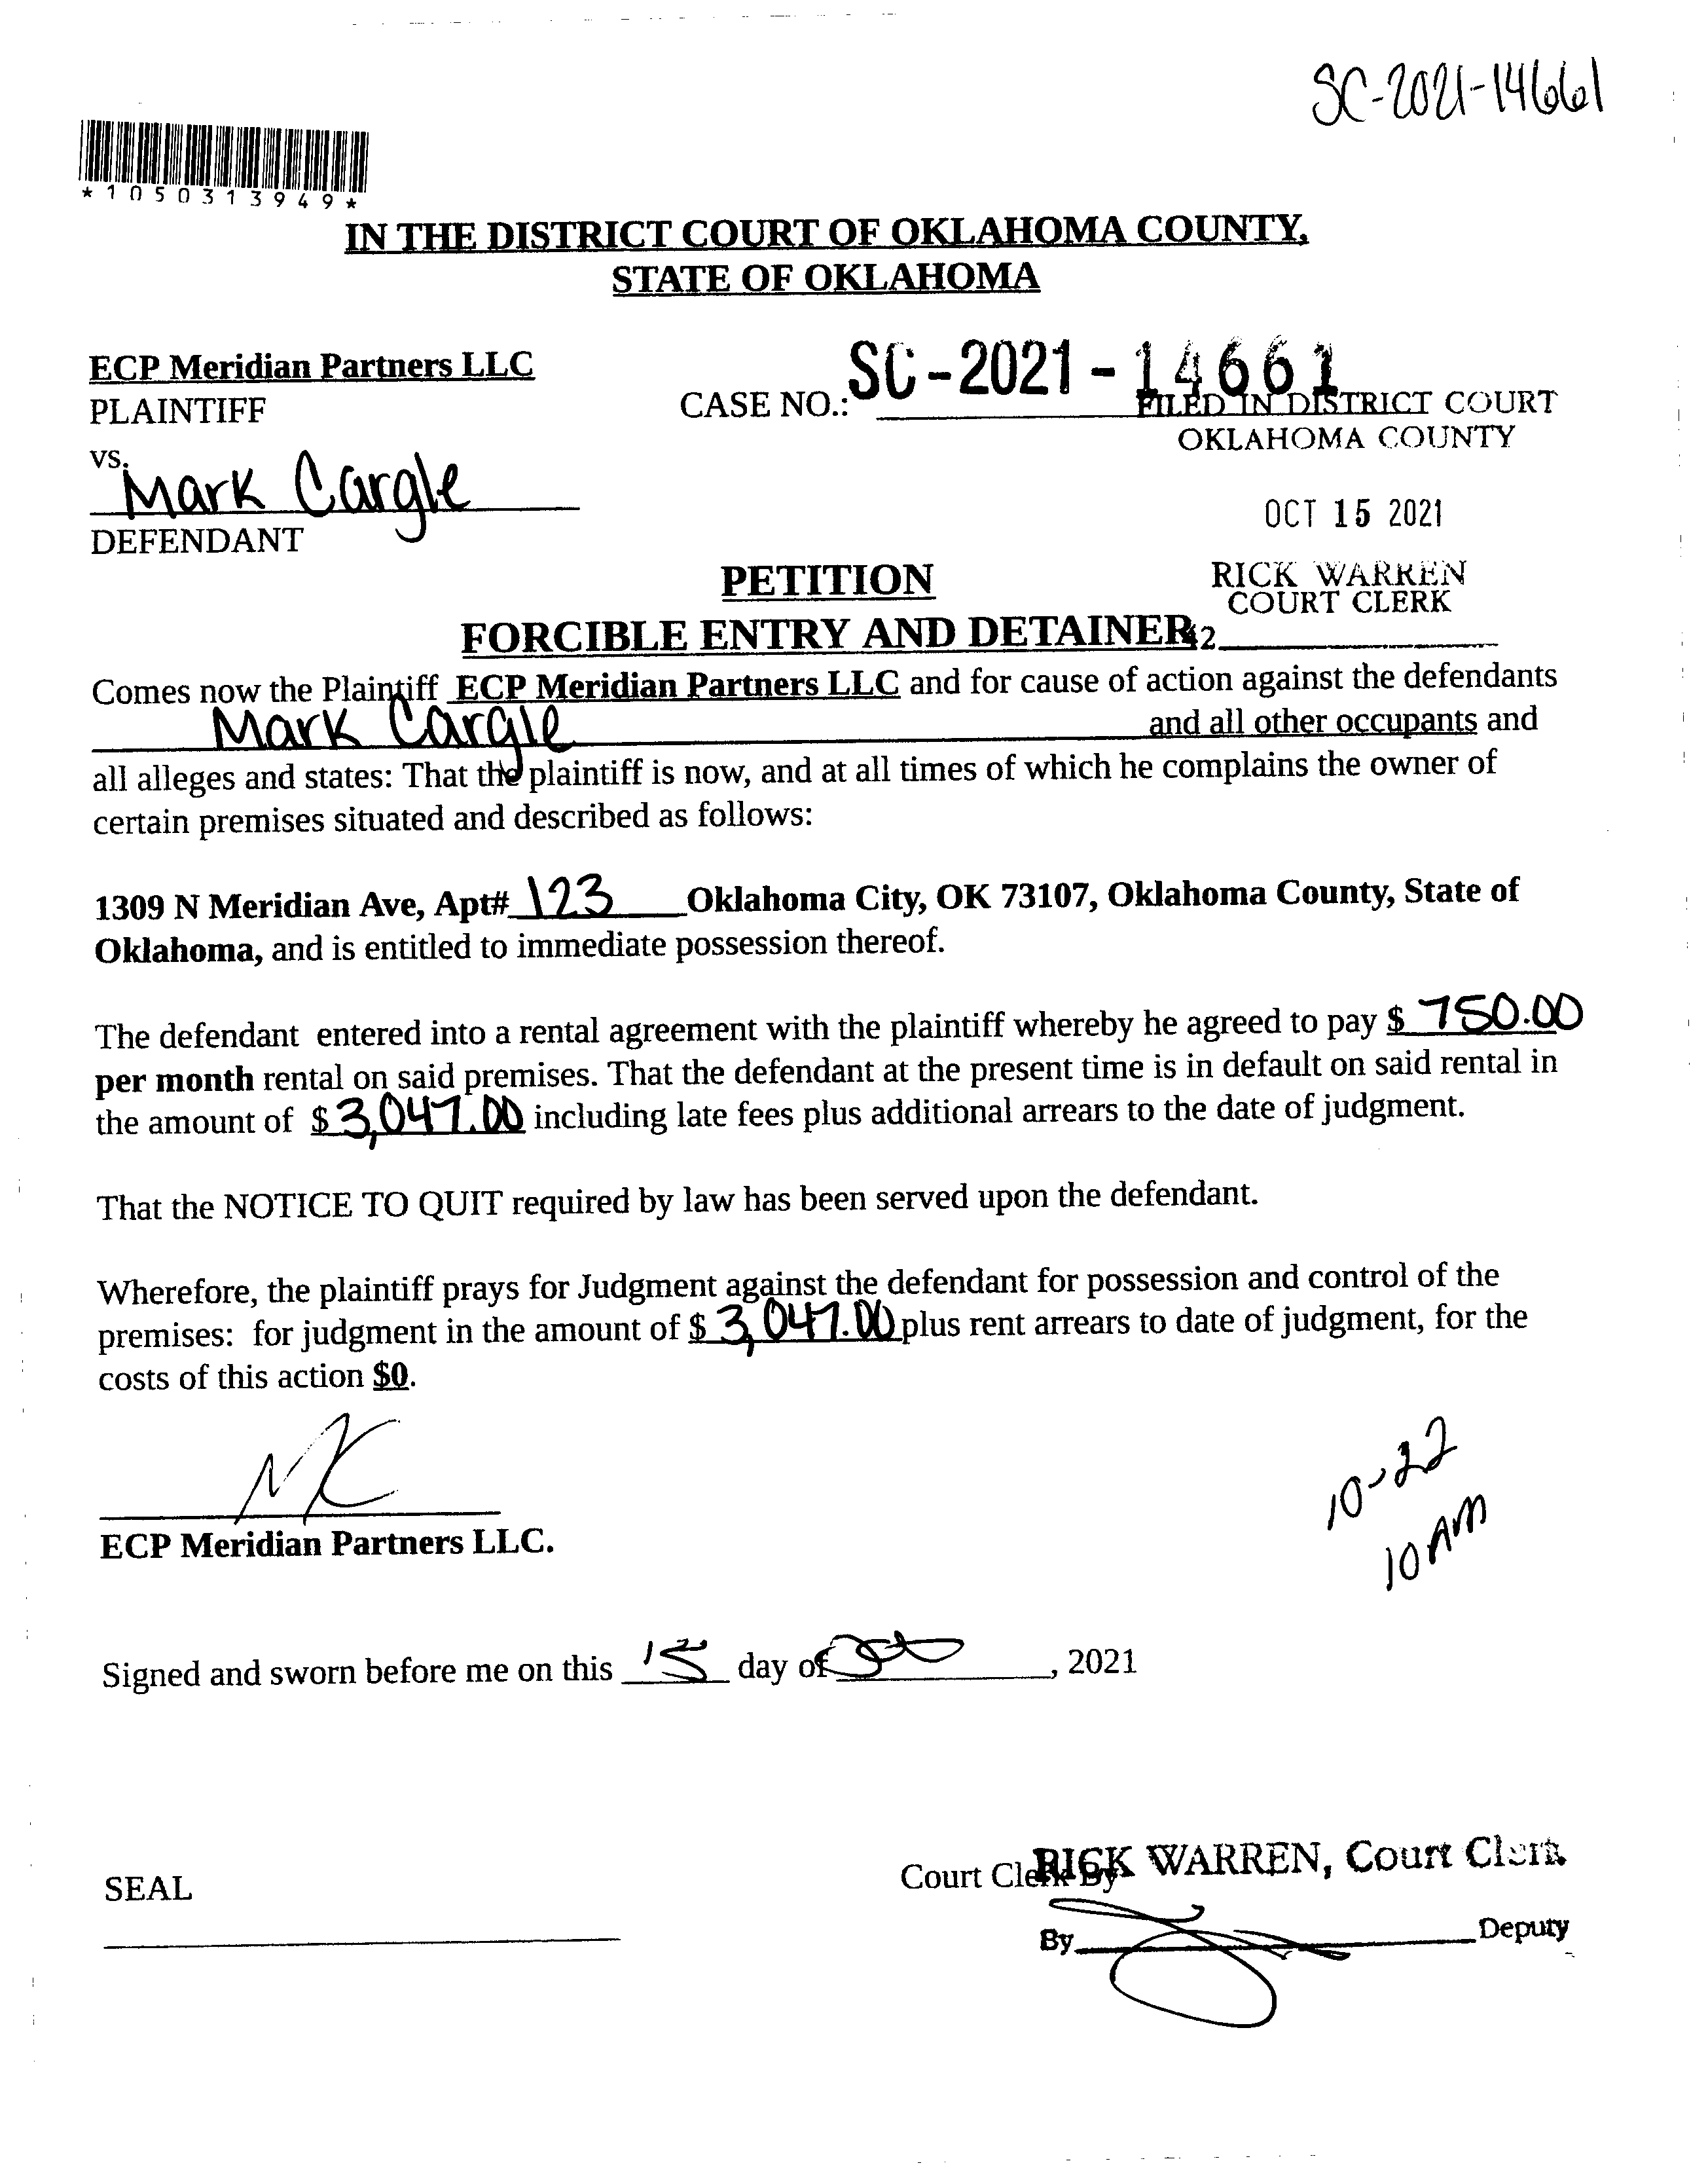 SC-2021-14661
*1050313949*
IN THE DISTRICT COURT OF OKLAHOMA COUNTY,
STATE OF OKLAHOMA
ECP Meridian Partners LLC
PLAINTIFF
CASE NO.: SC-2021-14661
FILED IN DISTRICT COURT
OKLAHOMA COUNTY
vs.
Mark Cargle
DEFENDANT
OCT 15 2021
RICK WARREN
COURT CLERK
PETITION
FORCIBLE ENTRY AND DETAINER
42
Comes now the Plaintiff ECP Meridian Partners LLC and for cause of action against the defendants
Mark Cargle and all other occupants and
all alleges and states: That the plaintiff is now, and at all times of which he complains the owner of
certain premises situated and described as follows:
1309 N Meridian Ave, Apt# 123 Oklahoma City, OK 73107, Oklahoma County, State of
Oklahoma, and is entitled to immediate possession thereof.
The defendant entered into a rental agreement with the plaintiff whereby he agreed to pay $ 750.00
per month rental on said premises. That the defendant at the present time is in default on said rental in
the amount of $3,047.00 including late fees plus additional arrears to the date of judgment.
That the NOTICE TO QUIT required by law has been served upon the defendant.
Wherefore, the plaintiff prays for Judgment against the defendant for possession and control of the
premises: for judgment in the amount of $ 3,047.00 plus rent arrears to date of judgment, for the
costs of this action $0.
ECP Meridian Partners LLC.
10-22
10 AM
Signed and sworn before me on this 15 day of Oct, 2021
SEAL
Court Clerk By
RICK WARREN, Court Clerk
By Deputy